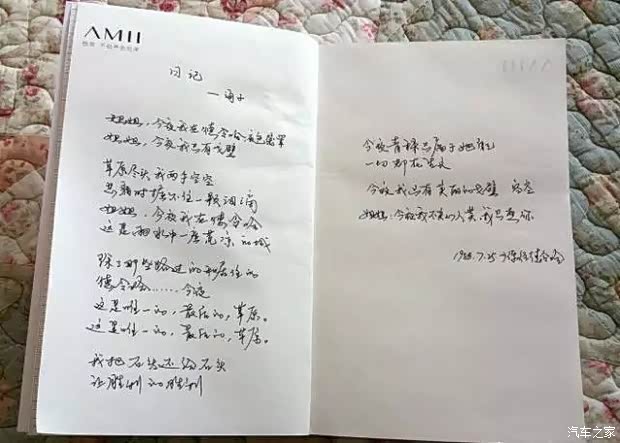 AMII
日记
—海子
姐姐,今夜我在德令哈,夜色笼罩
姐姐,今夜我只有戈壁
草原尽头我两手空空
悲痛时握不住一颗泪滴
姐姐,今夜我在德令哈
这是雨水中一座荒凉的城
除了那些路过的和居住的
德令哈……今夜
这是唯一的,最后的,草原。
这是唯一的,最后的,草原。
我把石头还给石头
让胜利的胜利
今夜青稞只属于她自己
一切都在生长
今夜我只有美丽的戈壁 空空
姐姐,今夜我不关心人类,我只想你
1988.7.25 德令哈
汽车之家